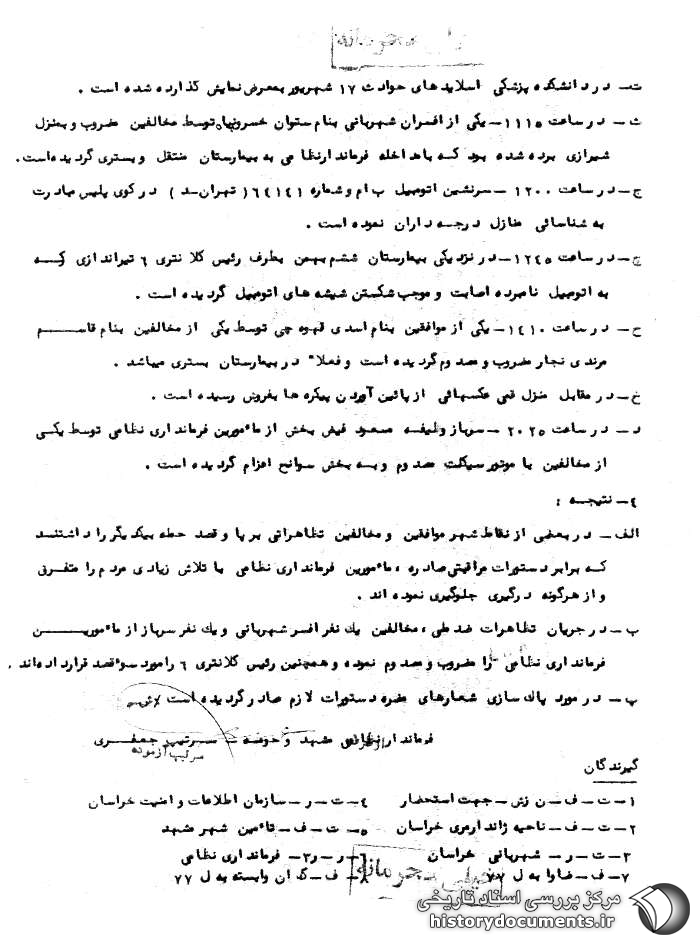 خیلی محرمانه
ت- در دانشکده پزشکی اسلاید های حوادث ۱۷ شهریور بمعرض نمایش گذارده شده است .
ث- در ساعت ۱۱۱۵- یکی از افسران شهربانی بنام ستوان خسرونیا توسط مخالفین مضروب و بمنزل
شیرازی برده شده بود که با مداخله فرماندار نظامی به بیمارستان منتقل و بستری گردیده است.
ج- در ساعت ۱۲۰۰- سرنشین اتومبیل ب ام و شماره ۶۴۱۴۱ ( تهران-د ) در کوی پلیس مبادرت
به شناسائی منازل درجه داران نموده است .
چ- در ساعت ۱۲۴۵- در نزدیکی بیمارستان ششم بهمن بطرف رئیس کلانتری ۶ تیراندازی که
به اتومبیل نامبرده اصابت و موجب شکستن شیشه های اتومبیل گردیده است .
ح- در ساعت ۱۴۱۰- یکی از موافقین بنام اسدی قهوه چی توسط یکی از مخالفین بنام قاسم
مرندی نجار مضروب و مصدوم گردیده است و فعلا" در بیمارستان بستری میباشد .
خ- در مقابل منزل قمی عکسهائی از پائین آوردن پیکره ها بفروش رسیده است .
د- در ساعت ۲۰۲۵- سرباز وظیفه مسعود فیض بخش از مأمورین فرمانداری نظامی توسط یکی
از مخالفین با موتور سیکلت مصدوم و به بخش سوانح اعزام گردیده است .
۴- نتیجه :
الف- در بعضی از نقاط شهر موافقین و مخالفین تظاهراتی برپا و قصد حمله بیکدیگر را داشتند
که برابر دستورات مراقبتی صادره ، مأمورین فرمانداری نظامی با تلاش زیادی مردم را متفرق
و از هرگونه درگیری جلوگیری نموده اند .
ب- در جریان تظاهرات ضد ملی ، مخالفین یک نفر افسر شهربانی و یک نفر سرباز از مأمورین
فرمانداری نظامی را مضروب و مصدوم نموده و همچنین رئیس کلانتری ۶ را مورد سوءقصد قرار داده اند .
پ- در مورد پاک سازی شعارهای مضره دستورات لازم صادر گردیده است
فرماندار نظامی مشهد و حومه - سرتیپ جعفری
سرتیپ آزموده
گیرندگان
۱- ت- ف- ن زش- جهت استحضار ۴- ت- ر- سازمان اطلاعات و امنیت خراسان
۲- ت- ف- ناحیه ژاندارمری خراسان ۵- ت- ف- تأمین شهر مشهد
۳- ت- ر- شهربانی خراسان ۶- ر- ر۳- فرمانداری نظامی
۷- ف- ل ۷۷ ۸- ف- گ ان وابسته به ل ۷۷
خیلی محرمانه
مرکز بررسی اسناد تاریخی
historydocuments.ir